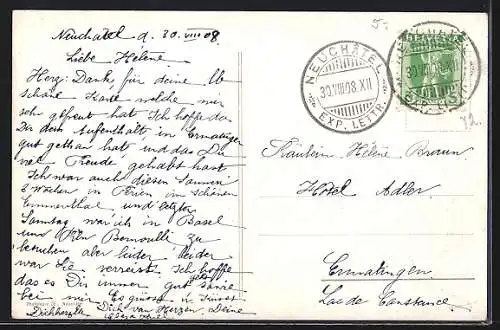 Neuchâtel d. 30 VIII 08.
Liebe Hélène
Herz. Dank für deine lb
schöne Karte welche mir
sehr gefreut hat Ich hoffe das
Dir dem Aufenthalt in Ermatingen
gut gethan hat und das Du
viel Freude gehabt hast
Ich war auch diesen Sommer
2 Wochen in Ferien im schönen
Emmenthal und letzten
Sonntag war ich in Basel
und Bernoulli zu
besuchen aber leider leider
war Sie verreist. Ich hoffe
das es Dir immer gut
bei mir Es grüsst u. küsst
Dich von Herzen, Deine
NEUCHÂTEL
30.VIII08.XII
EXP. LETTR.
HELVETIA
5
5.-
12.
Fräulein Hélène Braun
Hôtel Adler
Ermatingen
Lac de Constance